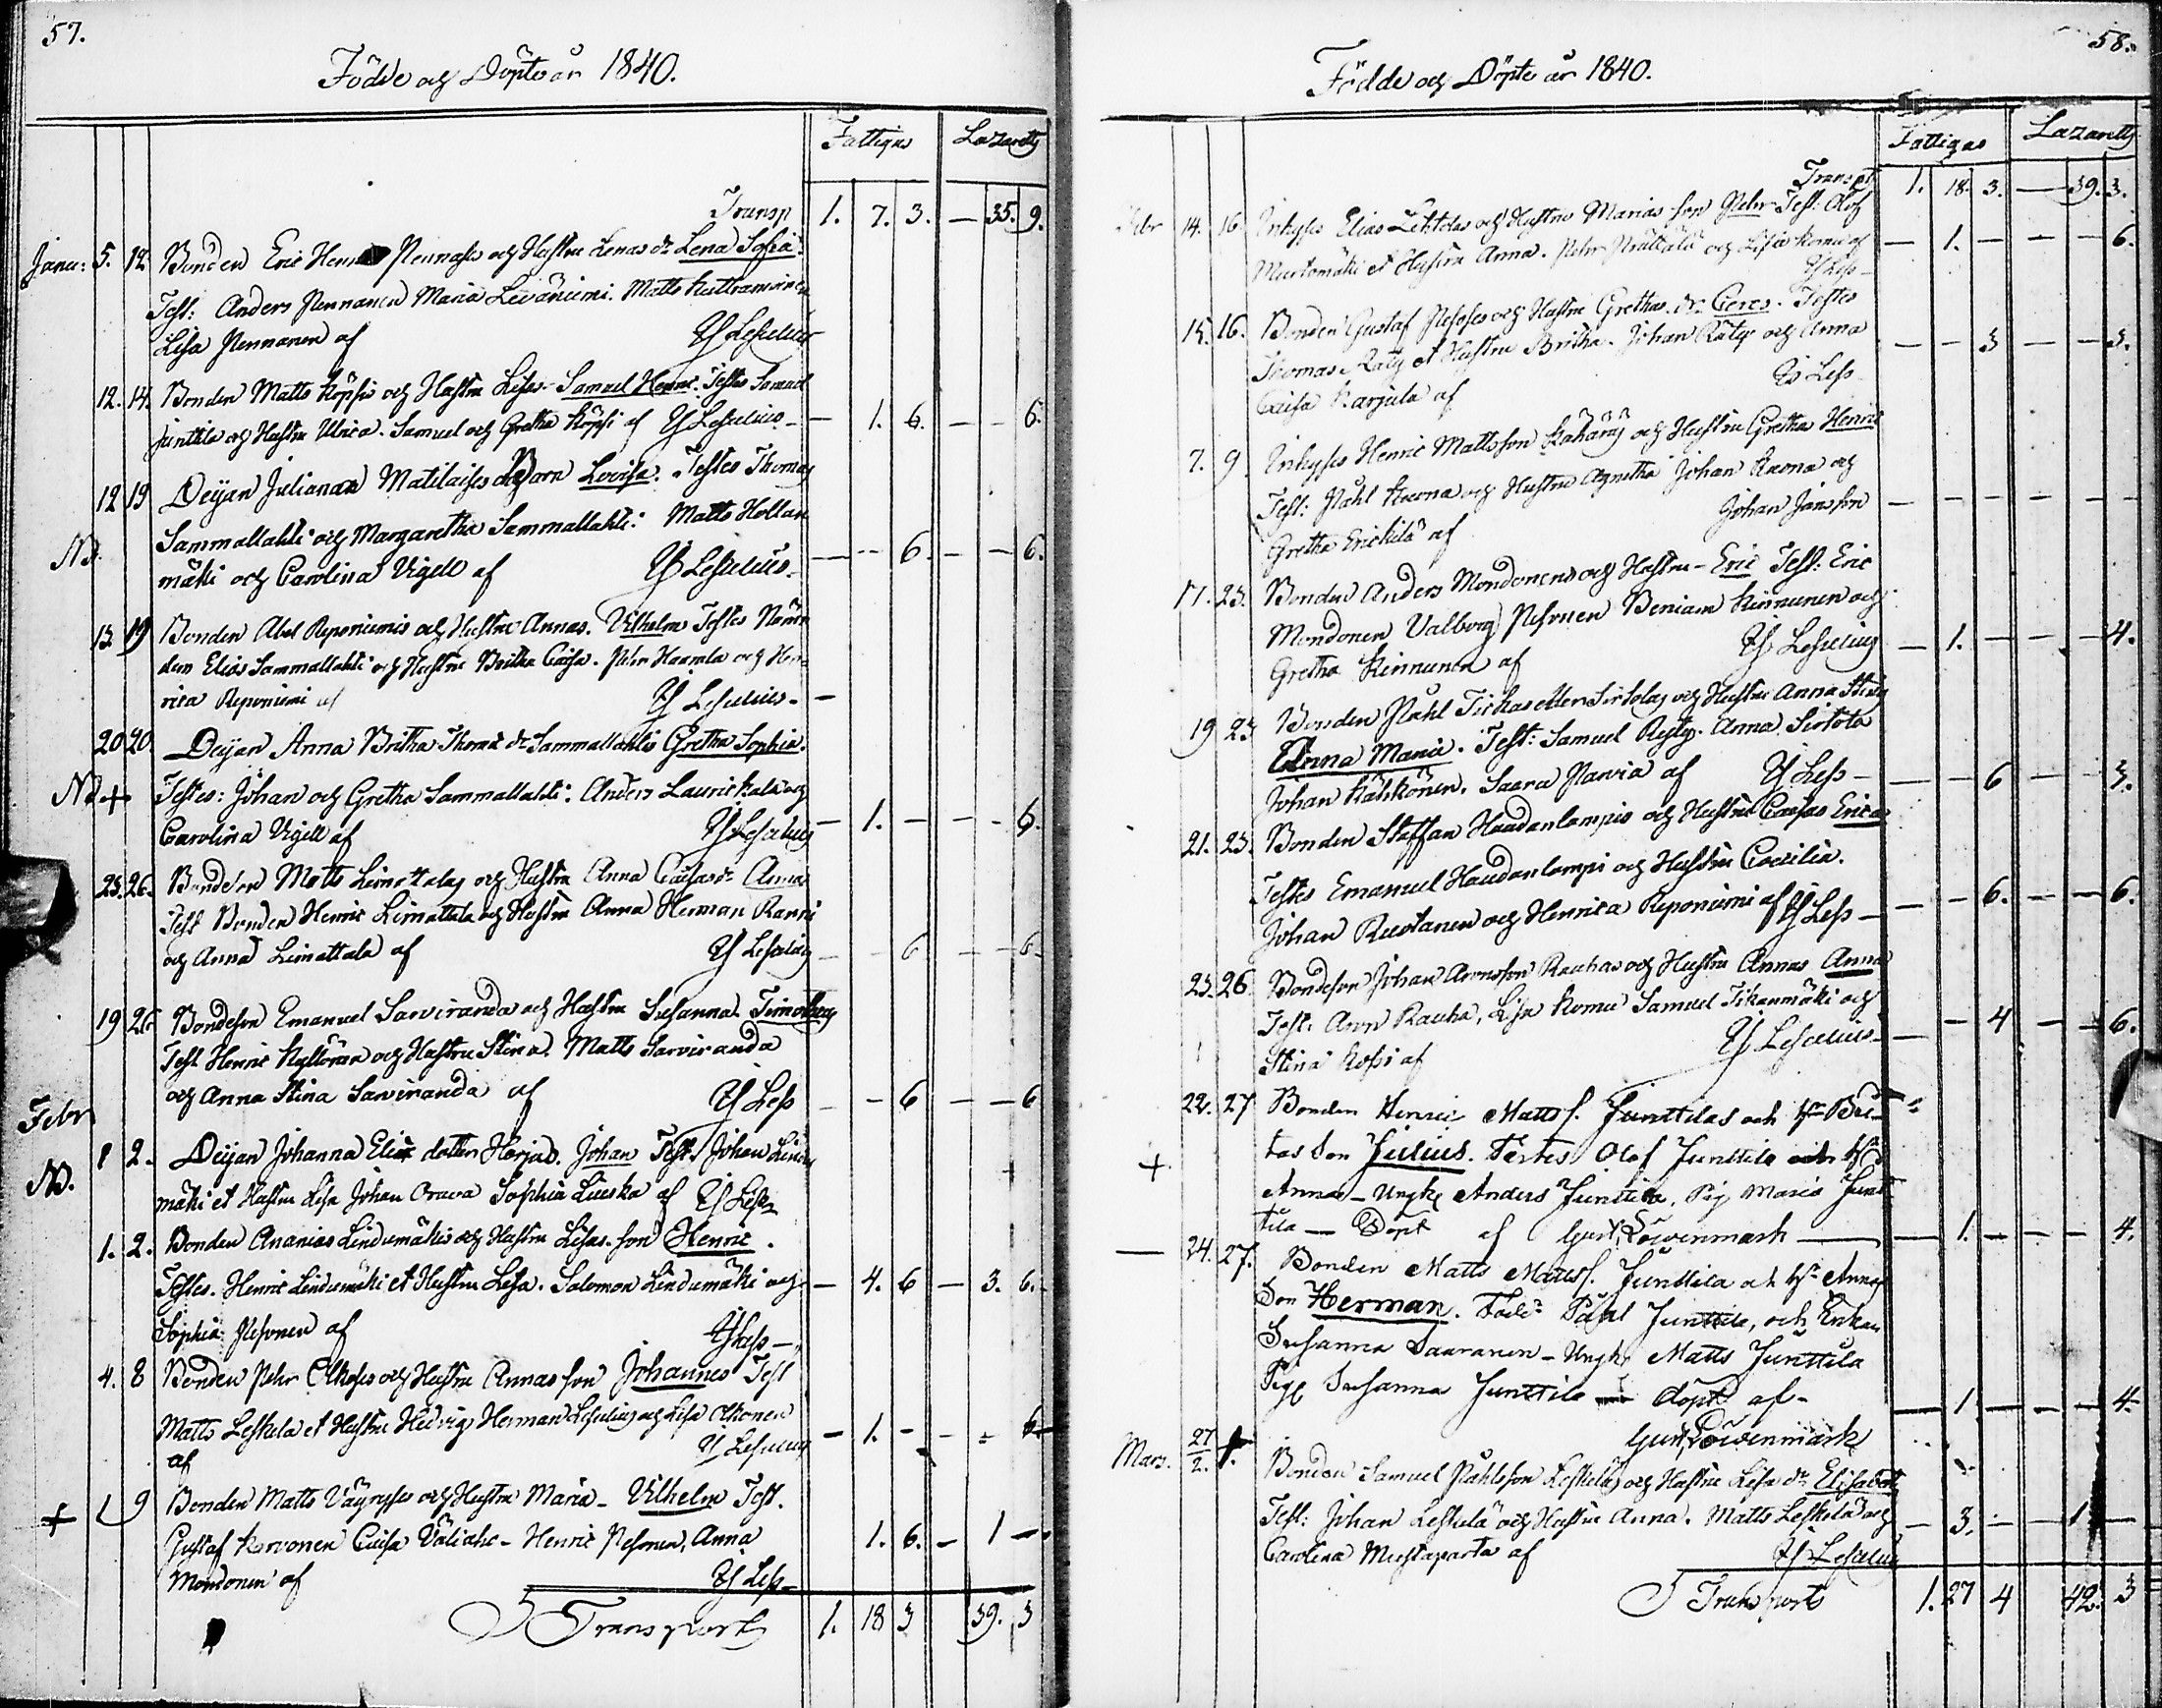 57.
Födde och Döpte år 1840.
Fattigas Lazaretts
Transp 1. 7. 3. — 35. 9.
Janu: 5. 12. Bonden Eric Pennases och Hustru Lenas dr Lena Sofia.
Test: Anders Pennanen Maria Leväniemi. Matts
Lisa Pennanen af Is Lesulius
12. 14. Bonden Matts Köpsis och Hustru Lisas- Samuel Henric. Testes Samuel
Junttila och Hustru Ulrica. Samuel och Gretha Köpsi af Is Lesulius — — 1. 6. — — 6.
12 19 Deijan Julianas Matilaises Barn Lovisa. Testes Thomas
Sammallahti och Margaretha Sammallahti. Matts Hollan
Nd.
mäki och Carolina Vigell af Is Lesulius — — — 6. — — 6.
13 19 Bonden Abel Reponiemis och Hustru Annas. Vilhelm Testes Nämn
dem Elias Sammallahti och Hustru Britha Caisa. Pehr Haarala och Hen-
rica Reponiemi af Is Lesulius — —
20 20. Deijan Anna Britha Thoma dr Sammallahtis Gretha Sophia.
Nd + Testes: Johan och Gretha Sammallahti. Anders Laurickala och
Carolina Vigell af Is Lesulius — 1. — — — 6.
23. 26. Bondeson Matts Limattalas och Hustru Anna Caisas dr Anna
Test Bonden Henric Limattala och Hustru Anna Herman Ranni
och Anna Limattala af Is Lesulius — — 6 — — 6.
19 26 Bondeson Emanuel Sarviranda och Hustru Susanna. Timotheus
Test Henric Kyllönen och Hustru Stina. Matts Sarviranda
och Anna Stina Sarviranda af Is Less — — 6 — — 6
Febr
1 2. Deijan Johanna Elias dotter Harjas. Johan Test. Johan Lindu
Nd.
mäki et Hustru Lisa Johan Orava Sophia Liuska af Is Less
1. 2. Bonden Ananias Lindumäkis och Hustru Lisas. son Henric.
Testes. Henric Lindumäki et Hustru Lisa. Salomon Lindumäki och — 4. 6 — 3. 6.
Sophia Pesonen af Is Less —
4. 8 Bonden Pehr Olkoses och Hustru Annas son Johannes Test
Matts Leskela et Hustru Hedvig Herman Lesulius och Lisa Olkonen — 1. — — — 6
af Is Lesulius
+ 1 9 Bonden Matts Väyryses och Hustru Maria- Vilhelm Test.
Gustaf Korvonen Caisa Väliaho- Henric Pesonen, Anna 1. 6. — 1 —
Mondonen af Is Less —
Transport 1. 18 3 39. 3
58.
Födde och Döpte år 1840.
Fattigas Lazaretts
Transpt 1. 18. 3. — 39. 3.
Febr 14. 16. Inhyses Elias Lehtolas och Hustrus Marias son Pehr Test: Olof
Murtomäki et Hustru Anna. Pehr Prättälä och Lisa Komu af — 1. — — — 6.
Is Less —
15. 16. Bonden Gustaf Pesoses och Hustru Grethas. dr Ceres. Testes
Thomas Räty et Hustru Britha. Johan Räty och Anna — — 3 — — 3.
Caisa Karjula af Is Less
7. 9. Inhyses Henric Mattsson Kähärä och Hustru Gretha Henric
Test: Påhl Kaona och Hustru Agnetha Johan Kaona och
Gretha Erickilä af Johan Jansson — — — — — —
17. 23. Bonden Anders Mondonens och Hustru- Eric Test: Eric
Mondonen Valborg Pesonen Beniam Kinnunen och
Gretha Kinnunen af Is Lesulius — 1. — — — 4.
19 23 Bonden Påhl Tickas eller Sirtolas och Hustru Anna Stinas
Anna Maria. Test: Samuel Ryty. Anna Sirtola
Johan Kähkönen. Saara Parvia af Is Less — — — 6 — — 3.
21. 23. Bonden Staffan Haudanlampis och Hustru Caisas Erica
Testes Emanuel Haudanlampi och Hustru Cæcilia.
Johan Ruotanen och Henrica Reponiemi af Is Less — — — 6. — — 6.
23. 26. Bondeson Johan Aronsson Rauhas och Hustru Annas Anna
Test: Aron Rauha, Lisa Komu Samuel Tikanmäki och
Stina Kossi af Is Lesulius — — — 4 — — 6.
22. 27 Bonden Henric Matts s. Junttilas och Hr Bri-
+ tas Son Julius. Testes Olof Junttila och H.
Anna- Ungk Anders Junttila, Pig Maria Junt
tila — Döpt af Gust. Löwenmark — — 1. — — — 4.
— 24. 27. Bonden Matts Matts s. Junttila och Hr Annas
Son Herman. Fadd. Påhl Junttila, och Enkan
Susanna Saaranen- Ungk. Matts Junttila
Pig Susanna Junttila döpt af — — 1. — — — 4.
Gust. Löwenmark
Mars. 27/2. 1. Bonden Samuel Påhlsson Leskelä och Hustru Lisa dr Elisabeth
Test: Johan Leskelä och Hustru Anna. Matts Leskelä och — 3. — — 1 —
Carolina Mustaparta af Is Lesulius
Transport 1. 27 4 42. 3